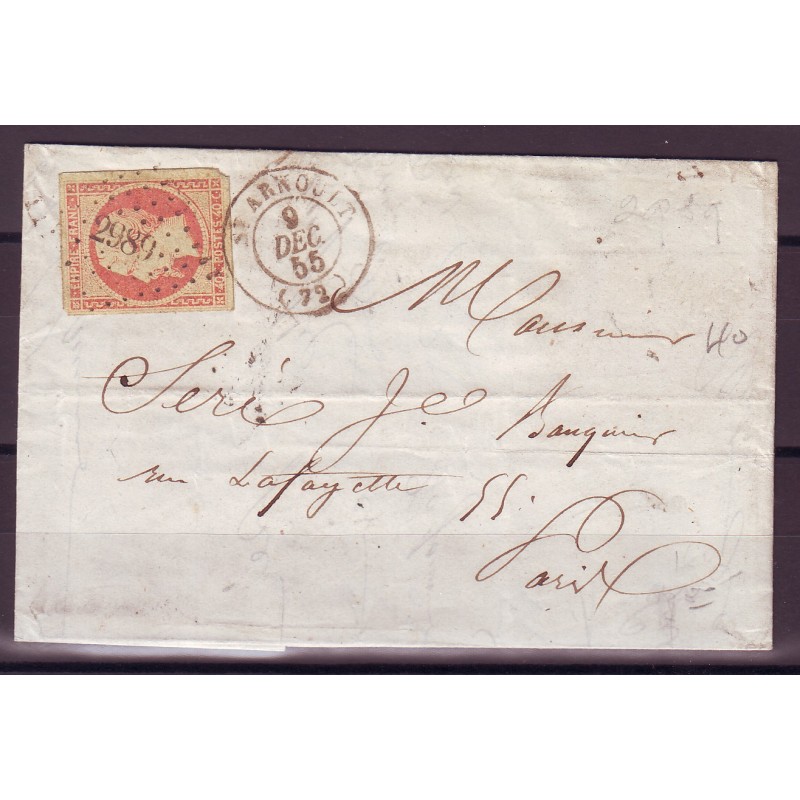 EMPIRE FRANC
POSTES
40 C
40 C
2989
ST ARNOULT
9
DEC.
55
(72)
2989
Monsieur
40
Seré Je Banquier
rue Lafayette 55.
Paris